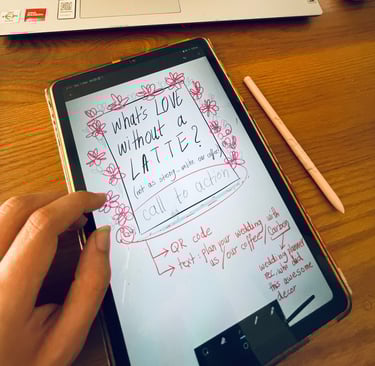 What's LOVE
without a
LATTE?
(not as strong... unlike our coffee)
call to action
QR code
text: plan your wedding with
us / our coffee /
wedding planner
rec. who did
this awesome
decor